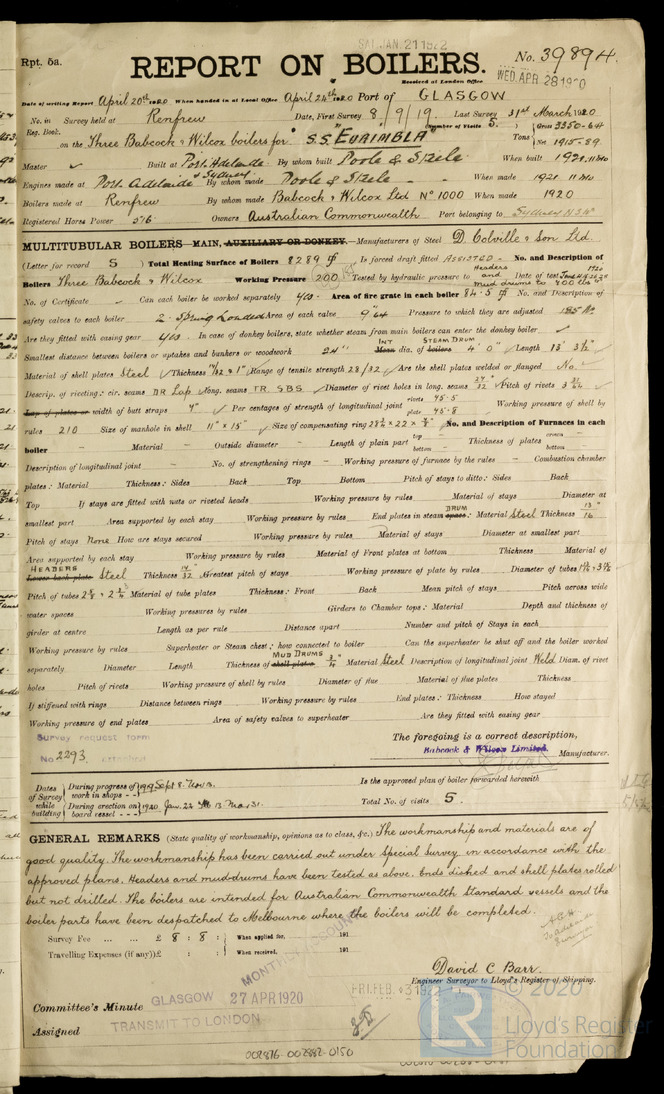 SAT. JAN. 21 1922
Rpt. 5a.
REPORT ON BOILERS.
No. 39894.
Received at London Office WED. APR 28 1920
Date of writing Report April 20th 1920 When handed in at Local Office April 24th 1920 Port of GLASGOW
No. in Reg. Book. Survey held at Renfrew Date, First Survey 8/9/19. Last Survey 31st March 1920
(Number of Visits 5.) Gross 3350.64
on the Three Babcock & Wilcox boilers for S.S. "EURIMBLA" Tons Net 1915.89
Master ✓ Built at Port Adelaide By whom built Poole & Steele When built 1921, 11 mo
Engines made at Port Adelaide & Sydney By whom made Poole & Steele When made 1921 11 mo
Boilers made at Renfrew By whom made Babcock & Wilcox Ltd No 1000 When made 1920
Registered Horse Power 576 Owners Australian Commonwealth Port belonging to Sydney N.S.W.
MULTITUBULAR BOILERS MAIN, AUXILIARY OR DONKEY. Manufacturers of Steel D. Colville & Son Ltd.
(Letter for record S) Total Heating Surface of Boilers 8289 Is forced draft fitted Assisted No. and Description of
Boilers Three Babcock & Wilcox Working Pressure 200 Tested by hydraulic pressure to Headers and Mud drums to 800 lbs Date of test
No. of Certificate Can each boiler be worked separately yes. Area of fire grate in each boiler 84.5 No. and Description of
safety valves to each boiler 2 Spring Loaded Area of each valve 9.64 Pressure to which they are adjusted 185
Are they fitted with easing gear yes. In case of donkey boilers, state whether steam from main boilers can enter the donkey boiler ✓
Smallest distance between boilers or uptakes and bunkers or woodwork 24" INT Mean dia. of STEAM DRUM boilers 4' 0" Length 13' 3½"
Material of shell plates Steel Thickness 19/32 & 1" Range of tensile strength 28/32 Are the shell plates welded or flanged No.
Descrip. of riveting: cir. seams DR Lap long. seams TR. SBS Diameter of rivet holes in long. seams Pitch of rivets
Lap of plates or width of butt straps 9" Per centages of strength of longitudinal joint rivets plate Working pressure of shell by
rules 210 Size of manhole in shell 11" × 15" Size of compensating ring No. and Description of Furnaces in each
boiler – Material – Outside diameter – Length of plain part top bottom – Thickness of plates crown bottom –
Description of longitudinal joint – No. of strengthening rings – Working pressure of furnace by the rules – Combustion chamber
plates: Material Thickness: Sides Back Top Bottom Pitch of stays to ditto: Sides Back
Top If stays are fitted with nuts or riveted heads Working pressure by rules Material of stays Diameter at
smallest part Area supported by each stay Working pressure by rules End plates in steam DRUM space: Material Steel Thickness 13/16"
Pitch of stays None How are stays secured Working pressure by rules Material of stays Diameter at smallest part
Area supported by each stay Working pressure by rules Material of Front plates at bottom Thickness Material of
HEADERS Lower back plate Steel Thickness 14/32 Greatest pitch of stays Working pressure of plate by rules Diameter of tubes
Pitch of tubes Material of tube plates Thickness: Front Back Mean pitch of stays Pitch across wide
water spaces Working pressures by rules Girders to Chamber tops: Material Depth and thickness of
girder at centre Length as per rule Distance apart Number and pitch of Stays in each
Working pressure by rules Superheater or Steam chest; how connected to boiler Can the superheater be shut off and the boiler worked
separately Diameter Length Thickness of MUD DRUMS shell plates ¾" Material Steel Description of longitudinal joint Weld Diam. of rivet
holes Pitch of rivets Working pressure of shell by rules Diameter of flue Material of flue plates Thickness
If stiffened with rings Distance between rings Working pressure by rules End plates: Thickness How stayed
Working pressure of end plates Area of safety valves to superheater Are they fitted with easing gear
Survey request form
No 2293 attached
The foregoing is a correct description,
Babcock & Wilcox Limited. Manufacturer.
Dates of Survey while building
During progress of work in shops - - 1919 Sept 8. Nov 13.
During erection on board vessel - - - 1920 Jan. 22 Feb 13 Mar 31.
Is the approved plan of boiler forwarded herewith
Total No. of visits 5.
GENERAL REMARKS (State quality of workmanship, opinions as to class, &c.) The workmanship and materials are of
good quality. The workmanship has been carried out under Special Survey in accordance with the
approved plans. Headers and mud drums have been tested as above. Ends dished and shell plates rolled
but not drilled. The boilers are intended for Australian Commonwealth Standard vessels and the
boiler parts have been despatched to Melbourne where the boilers will be completed.
Survey Fee ... ... £ 8 : 8 : When applied for, 191
Travelling Expenses (if any) £ : : When received, 191
MONTHLY ACCOUNT
David C Barr.
Engineer Surveyor to Lloyd's Register of Shipping.
Committee's Minute GLASGOW 27 APR 1920
FRI. FEB. 3 1922
Assigned TRANSMIT TO LONDON
© 2020
LR
Lloyd's Register
Foundation
002876-002882-0150